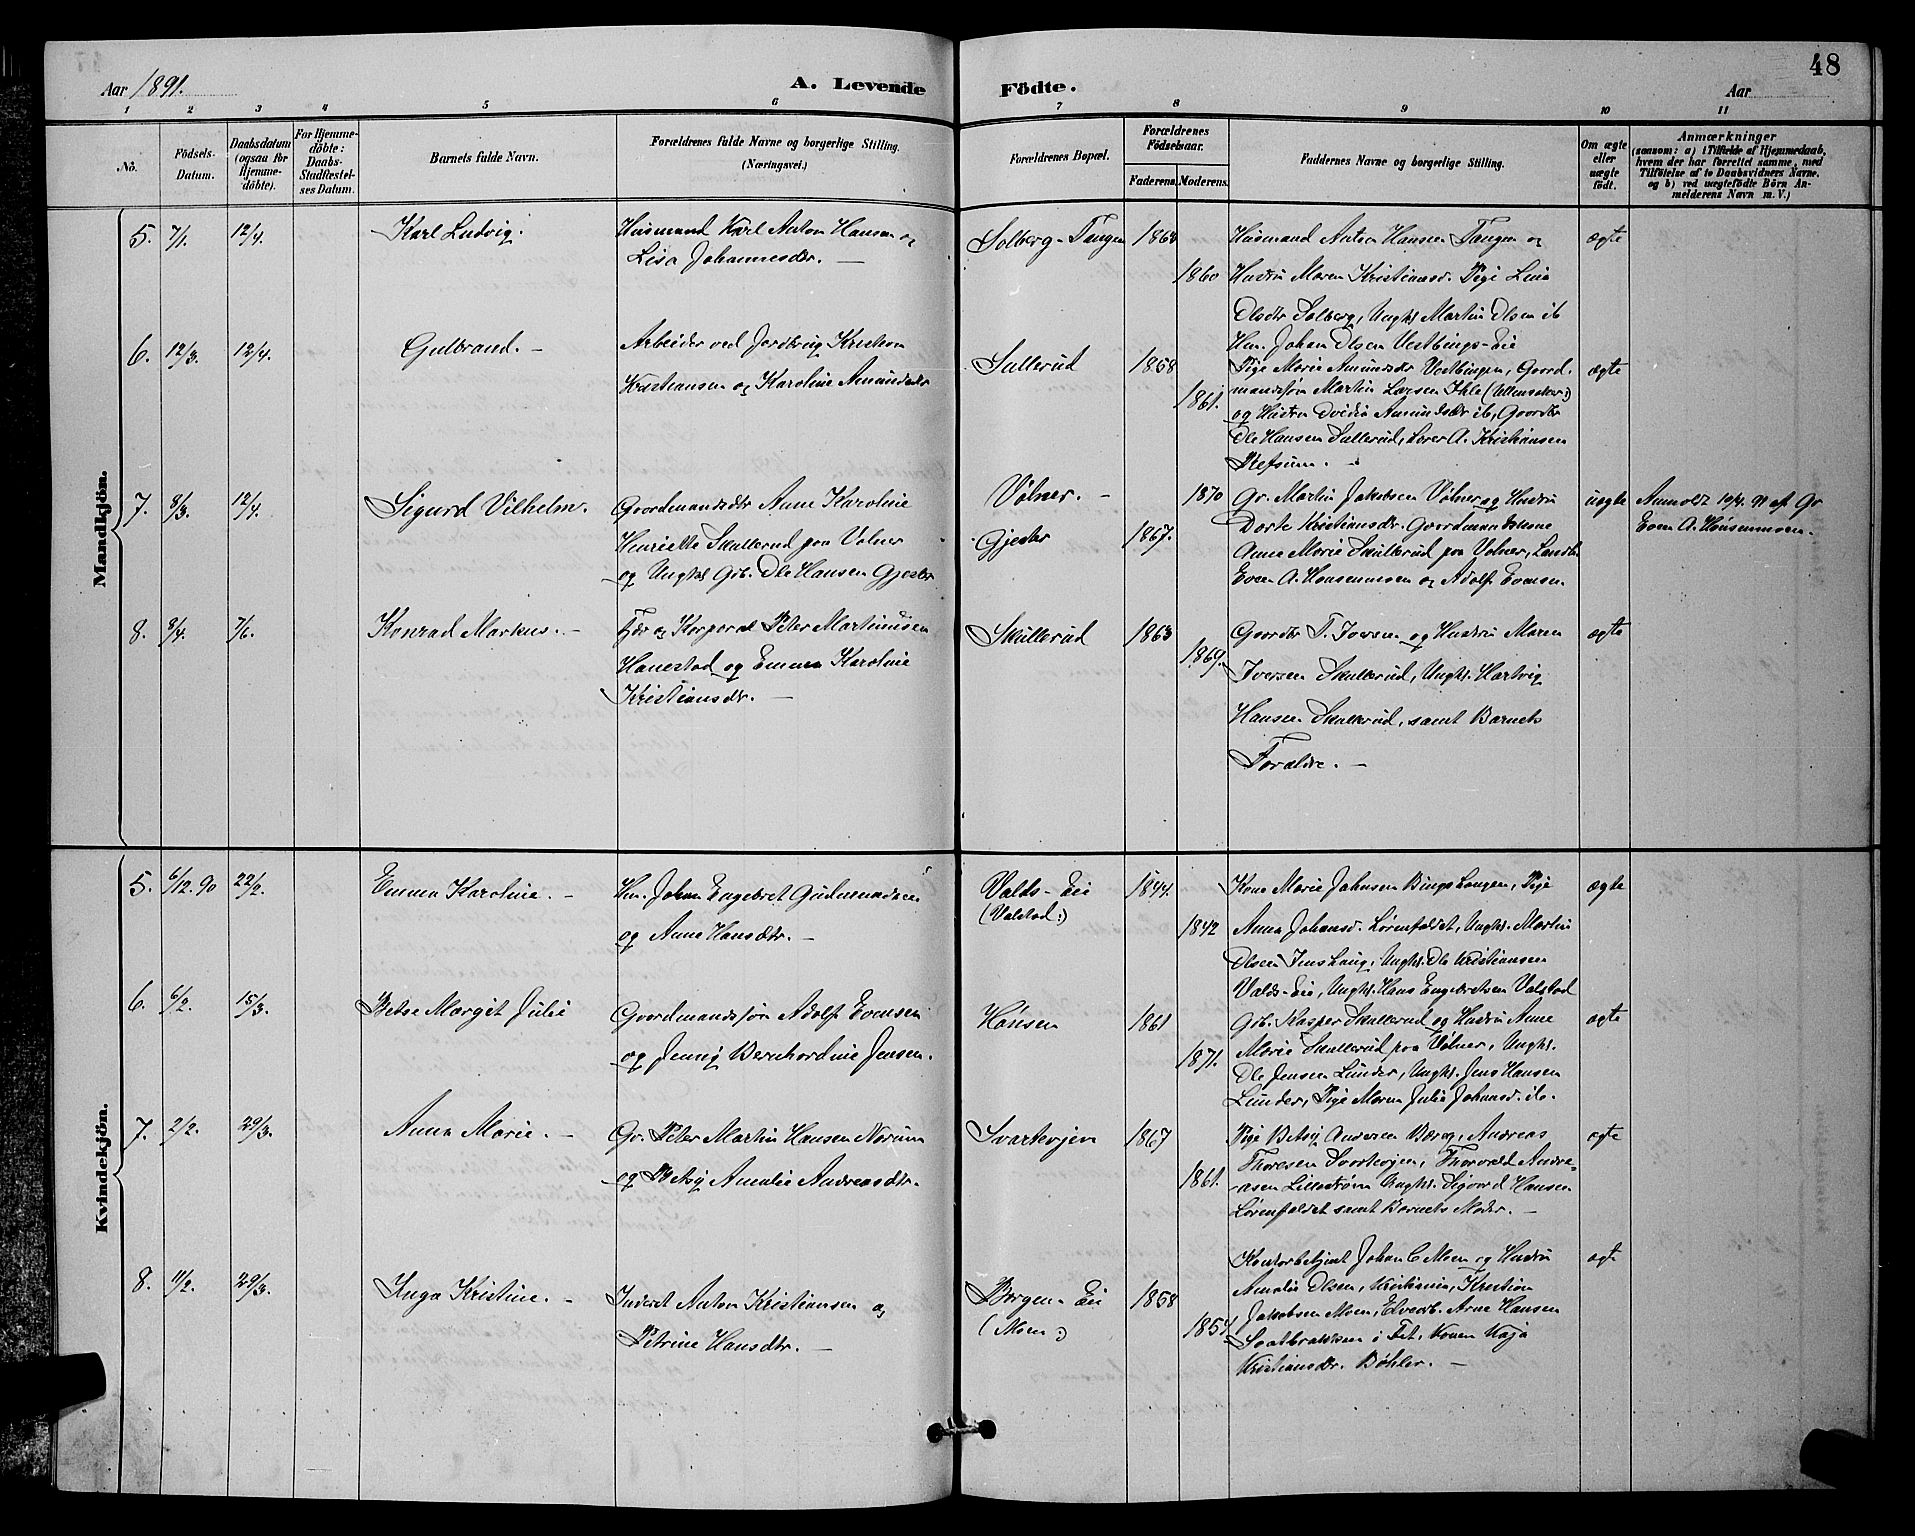 48
Aar 1891.
A. Levende Födte.
Aar
1 2 3 4 5 6 7 8 9 10 11
No.
Födsels-
Datum.
Daabsdatum
(ogsaa for
Hjemme-
döbte).
For Hjemme-
döbte:
Daabs-
Stadfæstel-
ses Datum.
Barnets fulde Navn.
Forældrenes fulde Navne og borgerlige Stilling.
(Næringsvei.)
Forældrenes Bopæl.
Forældrenes
Födselsaar.
Faderens. Moderens.
Faddernes Navne og borgerlige Stilling.
Om ægte
eller
uægte
født.
Anmærkninger
(saasom: a) i Tilfælde af Hjemmedaab,
hvem der har forrettet samme, med
Tilföielse af to Daabsvidners Navne.
og b) ved uægtefödte Börn An-
melderens Navn m. V.)
Mandkjön.
5. 7/1. 12/4. Karl Ludvig.
Husmand Karl Anton Hansen og
Lisa Johannesdr. —
Solberg-Tangen
1860
Husmand Anton Hansen Tangen og
Hustru Maren Kristiansd. Pige Lina
Olsdtr Solberg, Ungk. Martin Olsen ib
ægte
6. 12/3. 12/4. Gulbrand. —
Arbeider ved Jordbrug Kristian
Kristiansen og Karoline Amundsdr
Sallerud
1858
1861.
Hm. Johan Olsen Vestbings-Eie
Pige Marie Amundsdr Vestbingen, Gaard-
mandssøn Martin Larsen Ihle (Ullensaker:)
og Hustru Amundsdr ib, Gaardbr
Ole Hansen Sallerud, Lærer A. Kristiansen
Refsum. —
ægte
7. 8/3. 12/4. Sigurd Vilhelm.
Gaardmandsdtr Anne Karoline
Henriette Skullerud paa Vølner
og Ungkl. Gb. Ole Hansen Gjester
Vølner. —
Gjester
1870
1867.
Gr. Martin Jakobsen Vølner og Hustru
Dorte Kristiansdr. Gaardmandskone
Anne Marie Skullerud paa Volner,
Even A. Hønsenmoen og Adolf Evensen.
uægte
Anmeldt 10/4. 91 af Gr
Even A. Hønsenmoen.
8. 8/4. 7/6. Konrad Markus. —
og Korporal Peter Martiniusen
Hanestad og Emma Karoline
Kristiansdr. —
Skullerud
1863
1869.
Gaardbr T. Iversen og Hustru Maren
Iversen Skullerud, Ungk. Hartvig
Hansen Skullerud, samt Barnets
Forældre. —
ægte
Kvindekjön.
5. 6/12. 90 22/2. Emma Karoline. —
Hm. Johan Engebret Gudmundsen
og Anne Hansdtr. —
Valds-Eie
(Valstad:)
1844.
1842
Kone Marie Johnsen Bingslangen, Pige
Anna Johansd. Lørenfaldet, Ungk. Martin
Olsen Jenshaug, Ungk. Ole Kristiansen
Valds-Eie, Ungk. Hans Engebretsen Valstad
ægte
6. 6/2. 15/3. Betse Margit Julie
Gaardmandssøn Adolf Evensen
og Jenny Bernhardine Jensen.
Hønsen
1861
1871.
Gb. Kasper Skullerud og Hustru Anne
Marie Skullerud paa Vølner, Ungk.
Ole Jensen Lunder, Ungk. Jens Hansen
Lunder, Pige Maren Julie Johansd. ib.
ægte
7. 2/2. 29/3. Anna Marie. —
Gr. Peter Martin Hansen Norum
og Betsy Amalie Andreasdtr.
Svartevjen
1867
1861.
Pige Betsy Andersen Berg, Andreas
Thoresen Svartevjen, Thorvald Andre-
asen Lillestrøm Ungk. Sigvard Hansen
Lørenfaldet samt Barnets Moder. —
ægte
8. 11/2. 29/3. Inga Kristine. —
Inderst Anton Kristiansen og
Petrine Hansdtr. —
Borgen-Eie
(Moen:)
1858
Kontorbetjent Johan C Moen og Hustru
Amalie Olsen, Kristiania, Kristian
Jakobsen Moen, Elvearb. Arne Hansen
i Fet, Konen Kaja
Kristiansdr. Bøhler. —
ægte